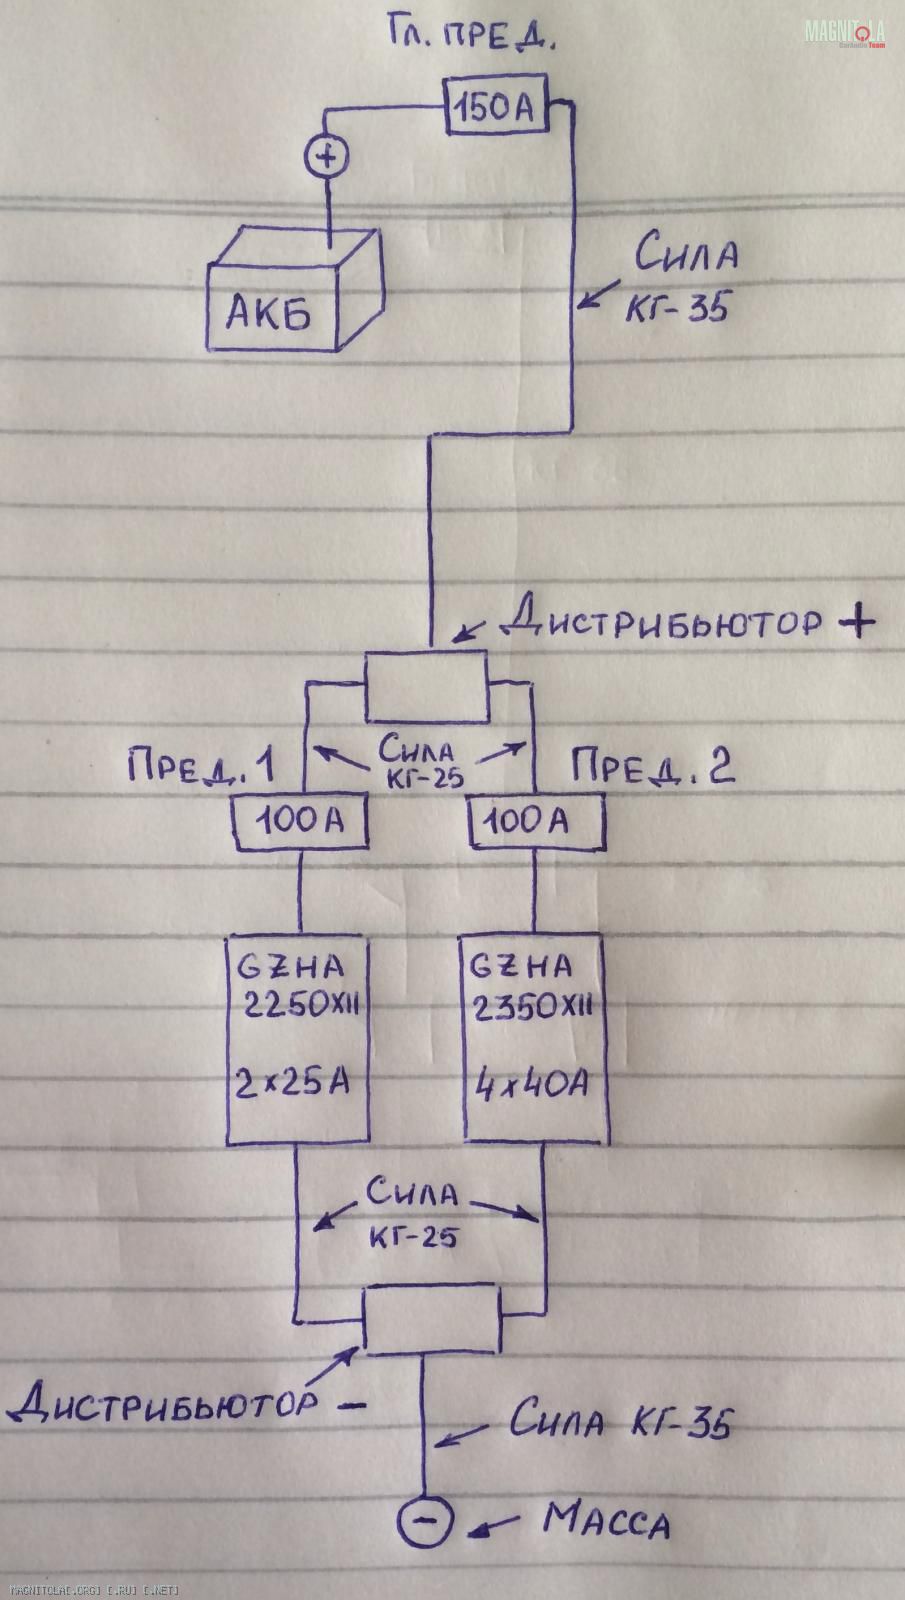 Гл. ПРЕД.
MAGNITOLA
CarAudio Team
150А
+
АКБ
СИЛА
КГ-35
ДИСТРИБЬЮТОР +
ПРЕД.1
СИЛА
КГ-25
ПРЕД.2
100А
100А
GZHA
2250XII
2x25А
GZHA
2350XII
4x40А
СИЛА
КГ-25
ДИСТРИБЬЮТОР -
СИЛА КГ-35
-
МАССА
MAGNITOLA[.ORG] [.RU] [.NET]